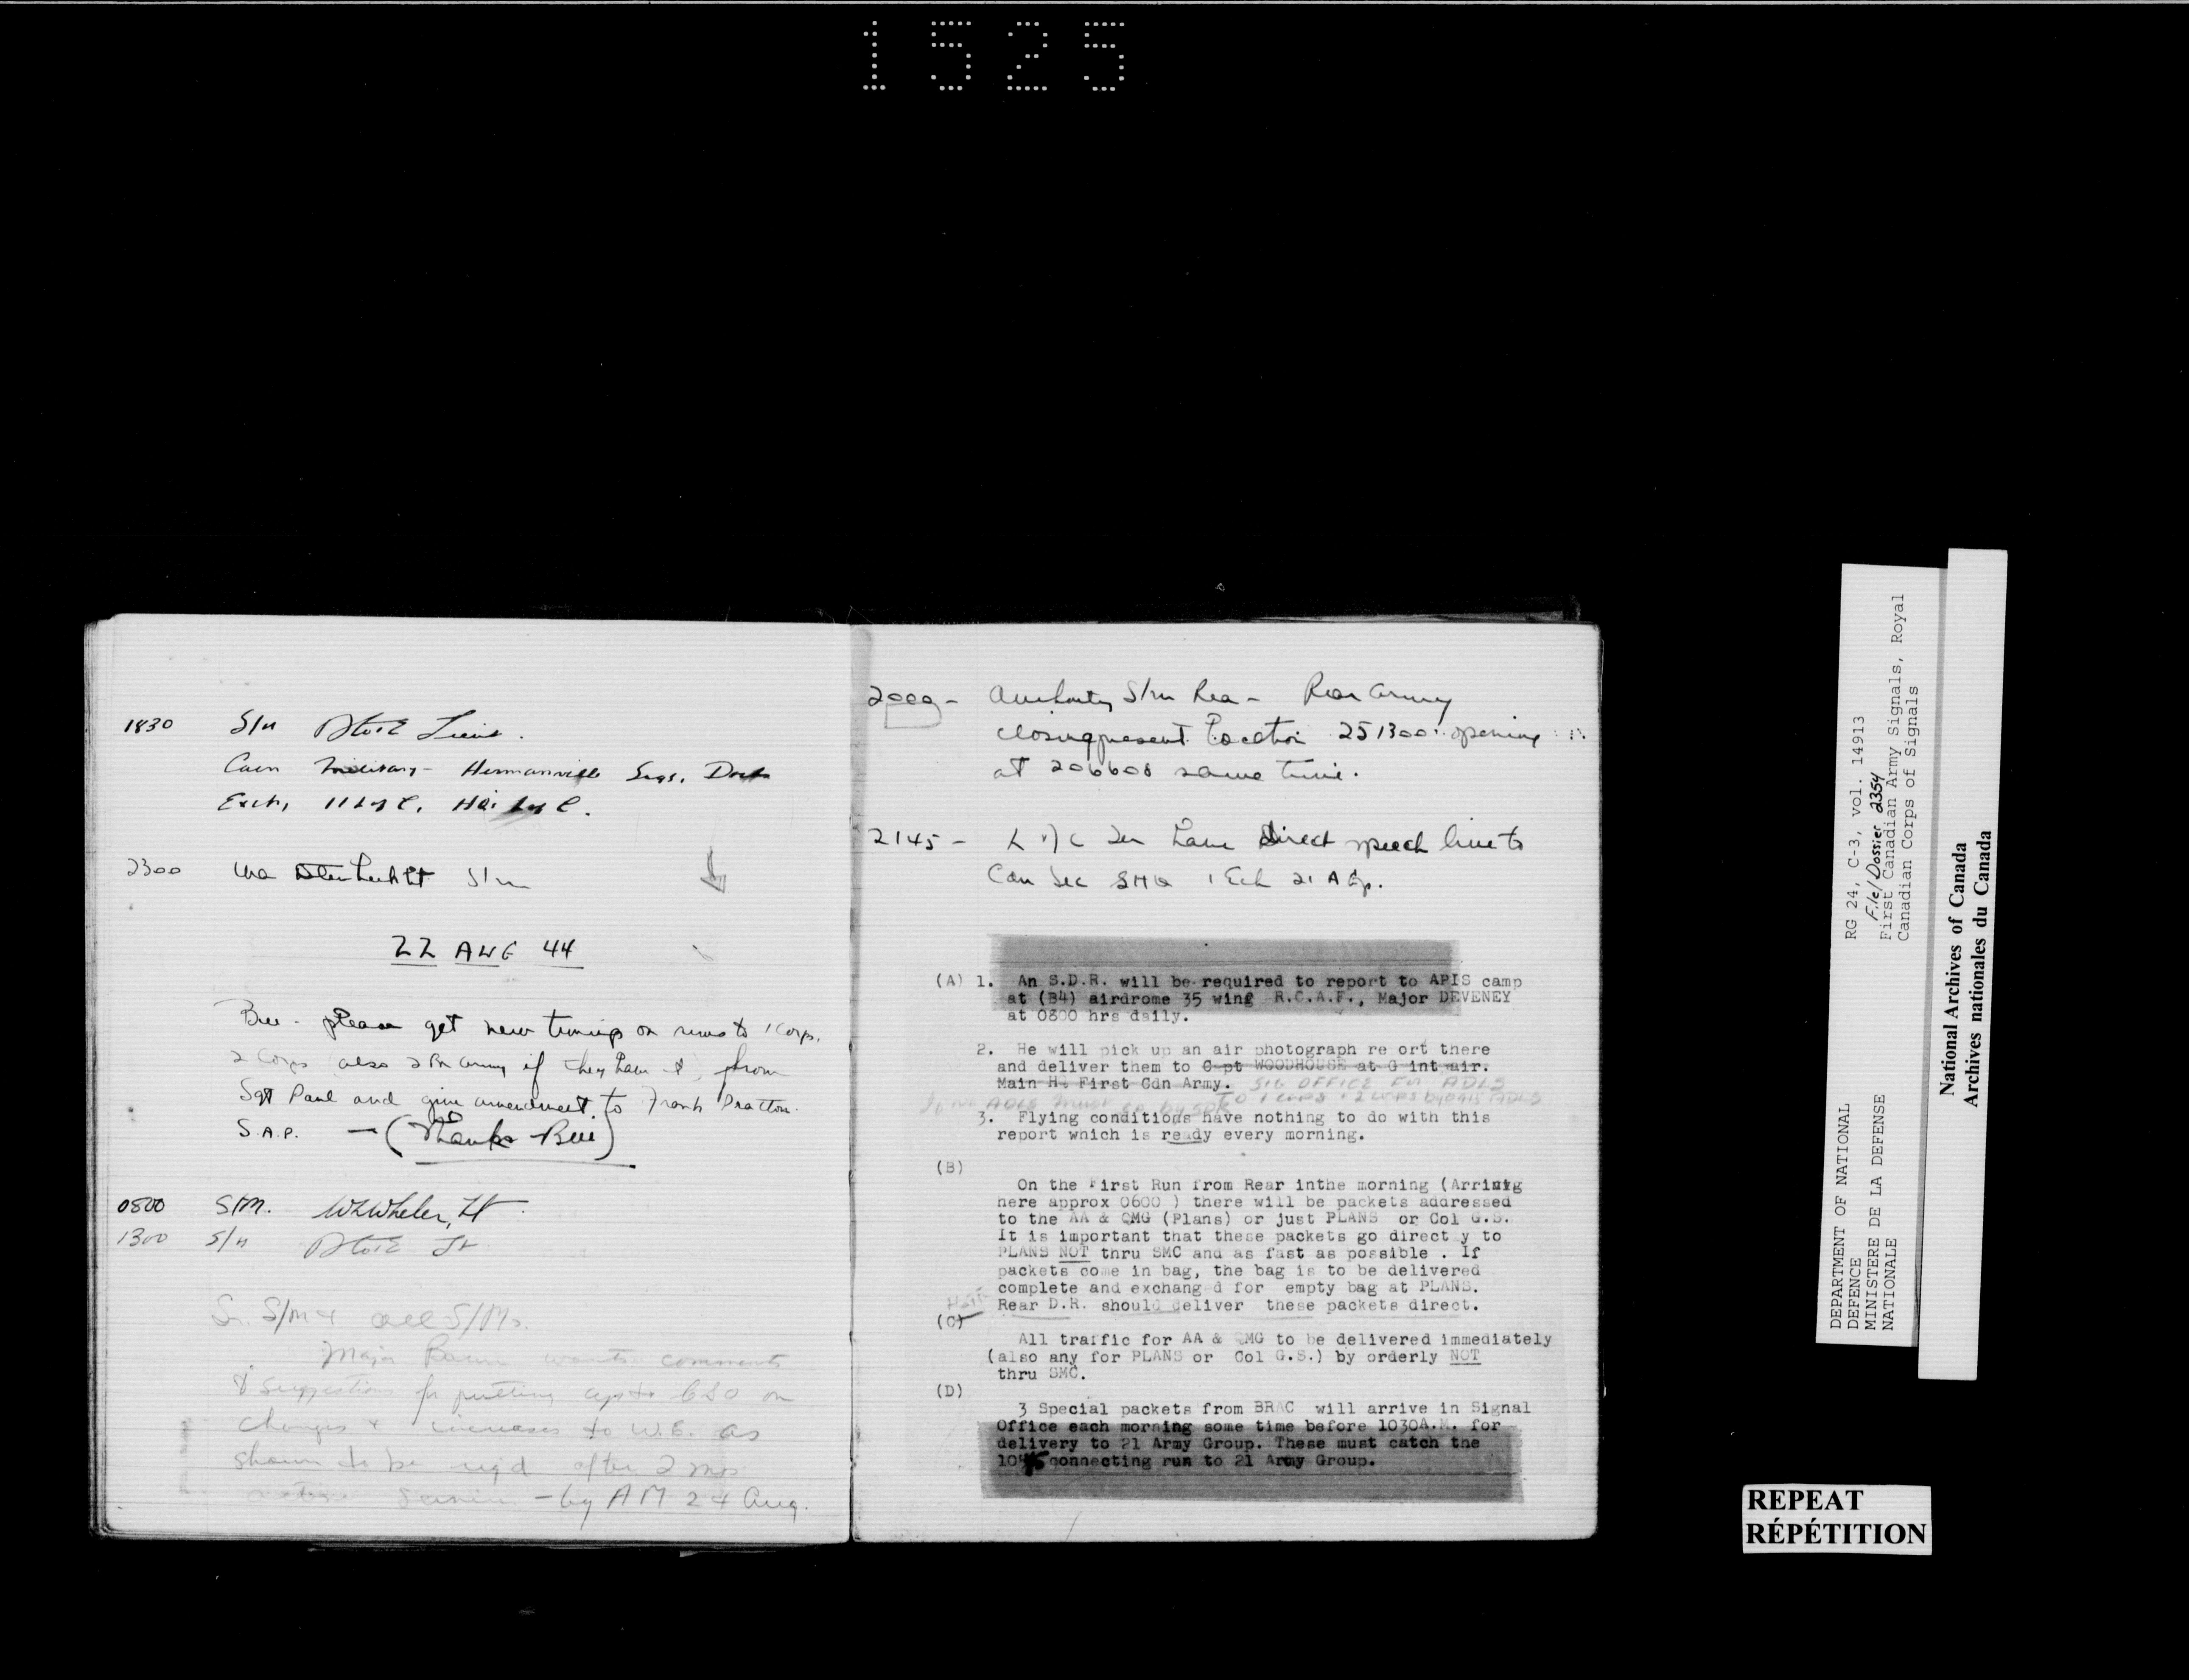 1525
1830 S/M Lieut.
Caen Military - Hermanville Sigs, Dock
Exch,
2300 S/M
22 AUG 44
Bill - please get new timings on runs to 1 Corps.
2 Corps (also 2 Br Army if they have it) from
Sgt Paul and give amendment to Frank Bratton.
S.A.P. - (Thanks Bill)
0800 S/M. Wheeler, Lt
1300 S/M Lt
Sr. S/M & all S/Ms.
Major wants comments
& suggestions for putting up to CSO on
changes & increases to W.E. as
shown to be req'd after 2 mos
active service - by AM 24 Aug.
2000 - S/M Rear - Rear Army
closing present location 251300 opening
at 206608 same time.
2145 - have direct speech line to
Cdn Sec GHQ 1 Ech 21 A Gp.
(A) 1. An S.D.R. will be required to report to APIS camp
at (B4) airdrome 35 wing R.C.A.F., Major DEVENEY
at 0800 hrs daily.
2. He will pick up an air photograph re ort there
and deliver them to C pt WOODHOUSE at G int air.
Main H. First Cdn Army. SIG OFFICE FOR ADLS
TO 1 CORPS + 2 CORPS by 0915 ADLS
If no ADLS must go by SDR
3. Flying conditions have nothing to do with this
report which is ready every morning.
(B)
On the First Run from Rear inthe morning (Arrinig
here approx 0600 ) there will be packets addressed
to the AA & QMG (Plans) or just PLANS or Col G.S.
It is important that these packets go direct y to
PLANS NOT thru SMC and as fast as possible . If
packets come in bag, the bag is to be delivered
complete and exchanged for empty bag at PLANS.
Rear D.R. should deliver these packets direct.
(C)
All traffic for AA & QMG to be delivered immediately
(also any for PLANS or Col G.S.) by orderly NOT
thru SMC.
(D)
3 Special packets from BRAC will arrive in Signal
Office each morning some time before 1030A.M. for
delivery to 21 Army Group. These must catch the
1045 connecting run to 21 Army Group.
DEPARTMENT OF NATIONAL
DEFENCE
MINISTERE DE LA DEFENSE
NATIONALE
RG 24, C-3, vol. 14913
File/Dossier 2354
First Canadian Army Signals, Royal
Canadian Corps of Signals
National Archives of Canada
Archives nationales du Canada
REPEAT
RÉPÉTITION